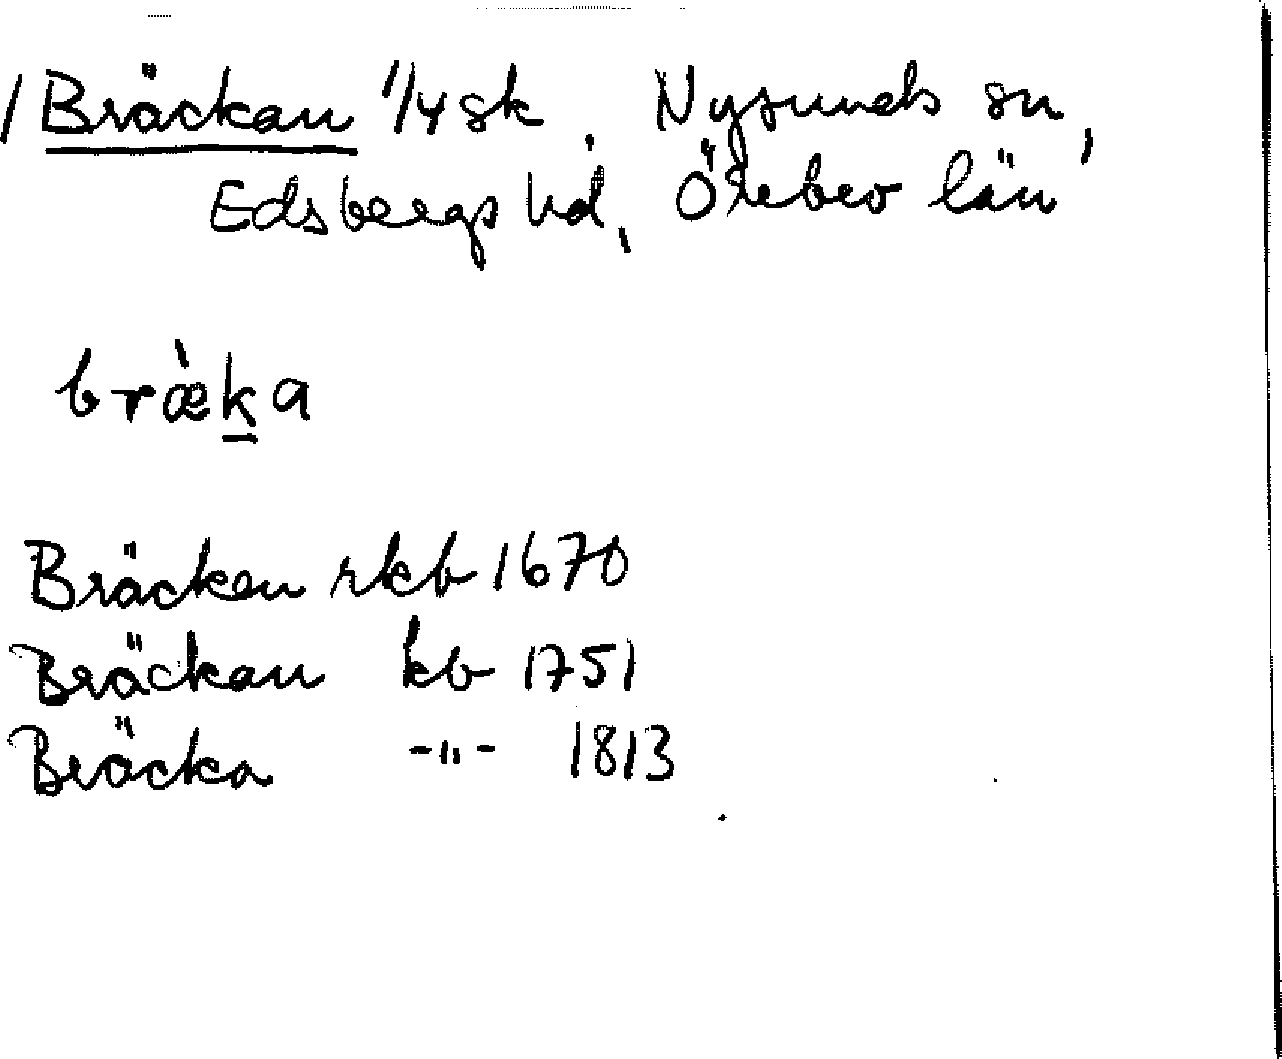 Bräckan 1/4 sk. Nysunds sn,
Edsbergs hd, Örebro län
bræ̀ka
Bräckan rkb 1670
Bräckan kb 1751
Bräcka -"- 1813